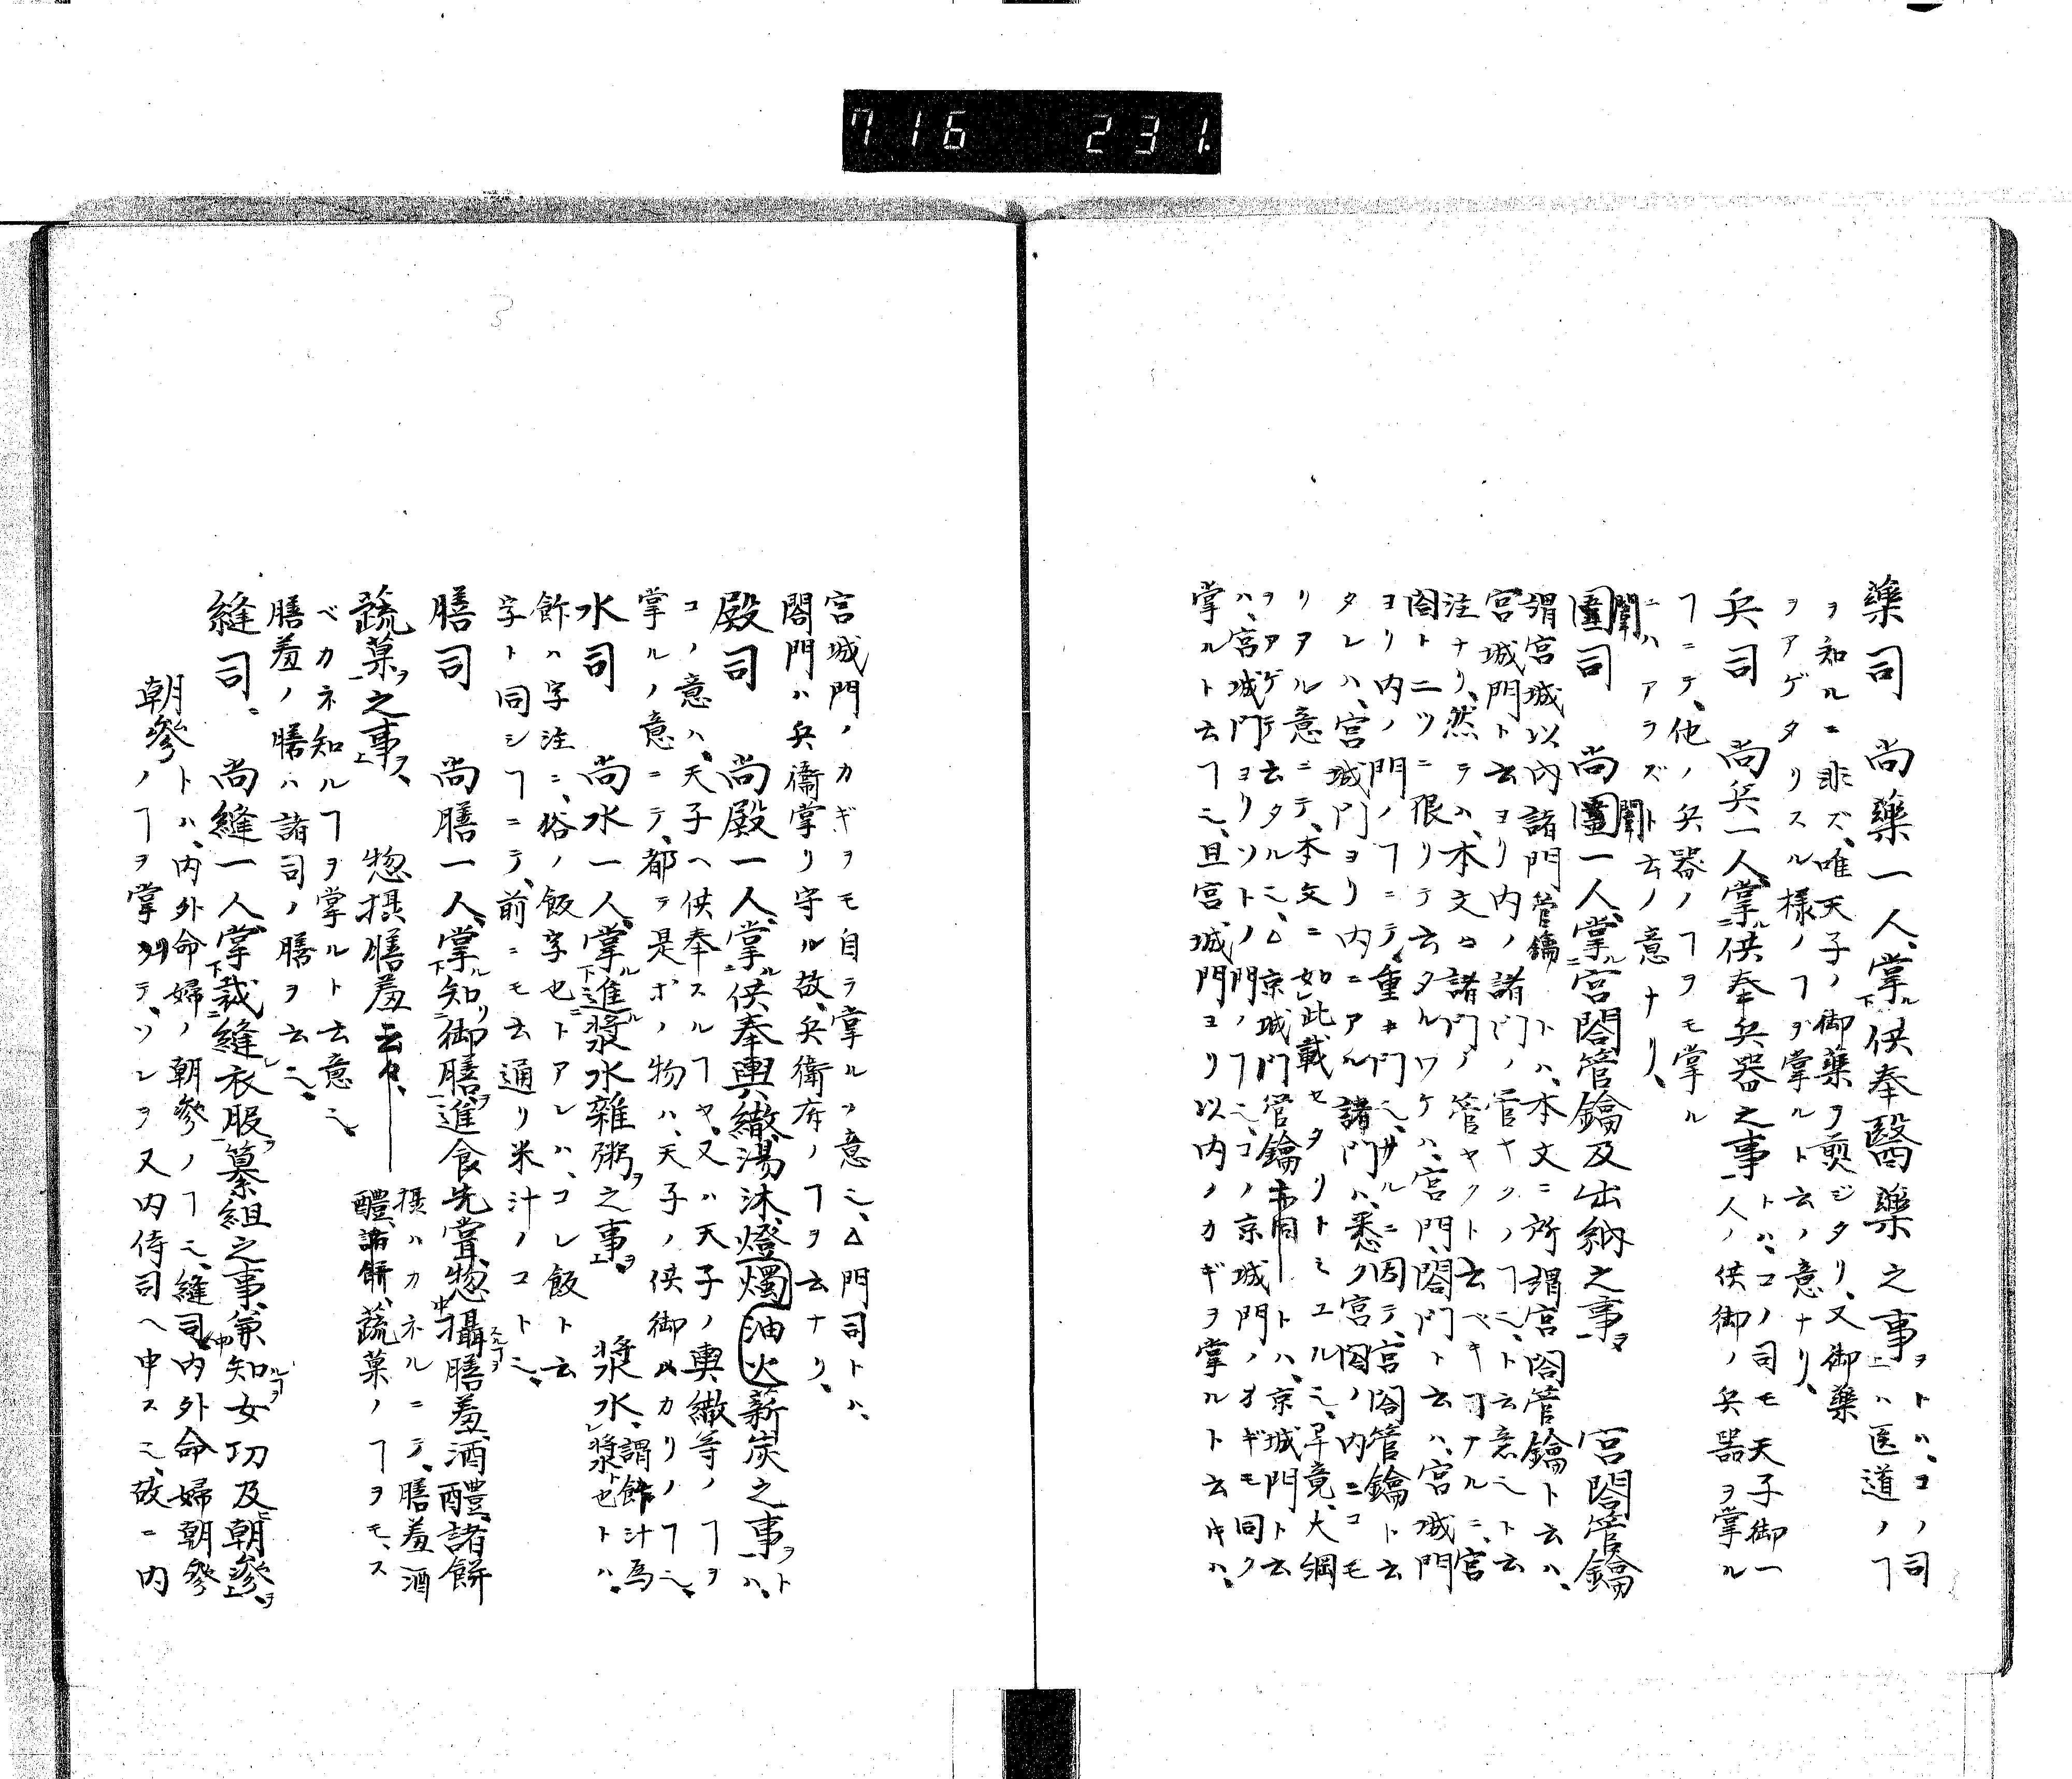 716 231.
藥司 尚藥一人、掌ル供奉醫藥之事ヲトハ、コノ司
ハ医道ノヿ
ヲ知ルニ非ズ、唯天子ノ御藥ヲ煎ジタリ、又御藥
ヲアゲタリスル様ノヿヲ掌ルト云ノ意ナリ、
兵司 尚兵一人、掌ル供奉兵器之事トハ、コノ司モ天子御一
人ノ供御ノ兵器ヲ掌ル
ヿニテ、他ノ兵器ノヿヲモ掌ル
ニハアラズト云ノ意ナリ、
闈司 尚闈一人、掌ル宮閤管鑰及出納之事ヲ 宮閤管鑰
謂宮城以内諸門管鑰トハ、本文ニ所謂宮閤管鑰ト云ハ、
宮城門ト云ヨリ内ノ諸門ノ管ヤクノヿニ、ト云意ニト云
注ナリ、然テハ、本文ニ諸門ノ管ヤクト云ベキヿナルニ、宮
閤ト二ツニ限リテ云タルワケハ、宮門、閤門ト云ハ、宮城門
ヨリ内ノ門ノヿニテ、重キ門ニ、サルニ因テ、宮閤管鑰ト云
タレハ、宮城門ヨリ内ニアル諸門ハ、悉ク宮閤ノ内ニコモ
リヲル意ニテ、本文ニ如此載セタリトミユルニ、畢竟、大綱
ヲアゲテ云タルニ、△京城門管鑰亦同トハ、京城門ト云
ハ、宮城門ヨリソトノ門ノヿニ、コノ京城門ノカギモ同ク
掌ルト云ヿニ、且宮城門ヨリ以内ノカギヲ掌ルト云キハ、
宮城門ノカギヲモ自ラ掌ルノ意ニ、△門司トハ、
閤門ハ兵衞掌リ守ル故、兵衛府ノヿヲ云ナリ、
殿司 尚殿一人、掌ル供奉輿繖湯沐燈燭油火薪炭之事ヲトハ、
コノ意ハ、天子ヘ供奉スルヿヤ、又ハ天子ノ輿繖等ノヿヲ
掌ルノ意ニテ、都テ是ホノ物ハ、天子ノ供御ハカリノヿニ、
水司 尚水一人、掌ル進漿水雜粥之事ヲ 漿水、謂飵汁為
漿也トハ、
飵ハ字注ニ、俗ノ飯字也トアレハ、コレ飯ト云
字ト同シヿニテ、前ニモ云通リ米汁ノコトニ、
膳司 尚膳一人、掌ル知リ御膳ヲ進食先嘗、惣攝膳羞酒醴諸餅
蔬菓ヲ之事ヲ、 惣摂膳羞云々、 摂ハカネルニテ、膳羞酒
醴諸餅、蔬菓ノヿヲモ、ス
ベカネ知ルヿヲ掌ルト云意ニ、
膳羞ノ膳ハ諸司ノ膳ヲ云ニ、
縫司 尚縫一人、掌裁縫衣服ヲ纂組之事、兼知女功及朝參ヲ、
朝參トハ、内外命婦ノ朝參ノヿニ、縫司内外命婦朝參
ノヿヲ掌列テ、ソレヲ又内侍司ヘ申スニ、故ニ内